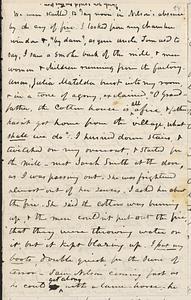 We were called to my room in Nelson's absence
by the cry of fire. I looked from my chamber
window & "Yes ma'am," again said Tom and to
say, I saw a smoke back of the mill & men
women & children running from the factory.
Anna Julia Matilda burst into my room
in a tone of agony, exclaimed "O Grand
father, the Cotton house all afire, & father
hasn't got home from the village, what
shall we do". I hurried down stairs &
twitched on my overcoat, & started for
the mill - met Sarah Smith at the door
as I was passing out. She was frightened
almost out of her senses. I asked her about
the fire. She said the cotton was burning
up, & the men could not put out the fire,
that they were throwing water on
it, but it kept blazing up. I put my
boots, double quick for the scene of
terror - Saw Nelson coming just as
he could with a came home, he